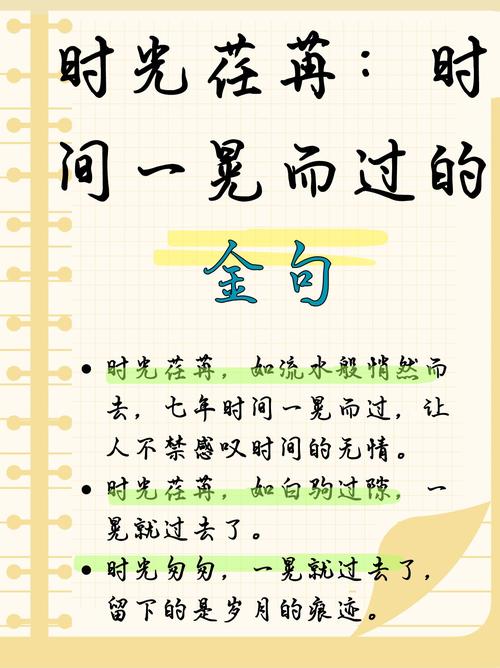 时光荏苒：时
间一晃而过的
金句
• 时光荏苒，如流水般悄然而
去，七年时间一晃而过，让
人不禁感叹时间的无情。
• 时光荏苒，如白驹过隙，一
晃就过去了。
• 时光匆匆，一晃就过去了，
留下的是岁月的痕迹。